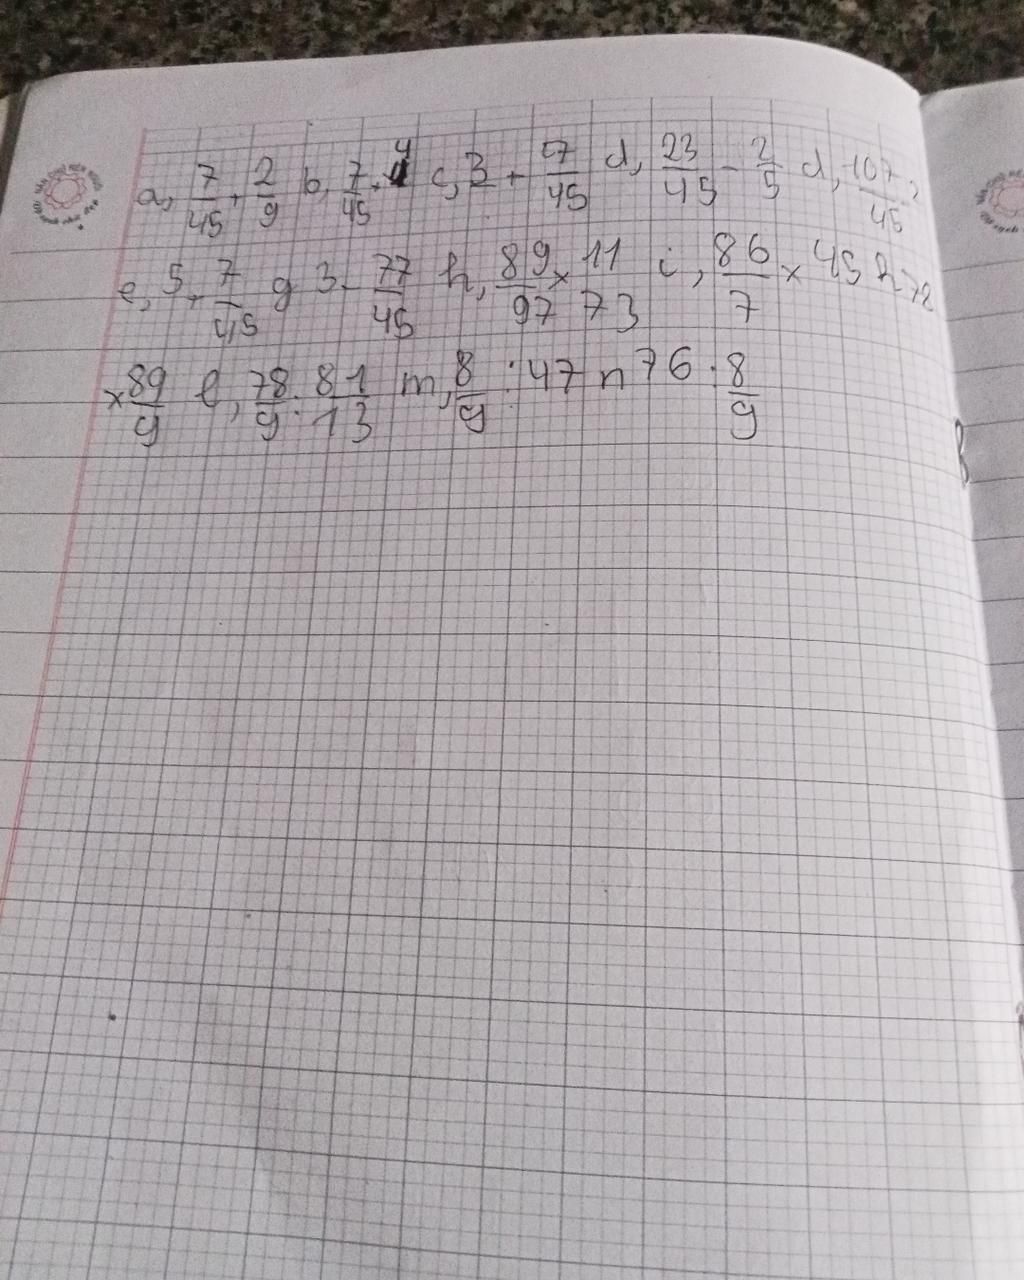 a, 7/45 + 2/9 b, 7/45 + 4 c, 3 + 17/45 d, 23/45 - 2/5 d, 107/45 - 2
e, 5 - 7/45 g 3 - 77/45 h, 89/97 x 11/73 i, 86/7 x 45 k 72
x 89/9 l, 78/9 : 81/13 m, 8/9 : 47 n 76 : 8/9